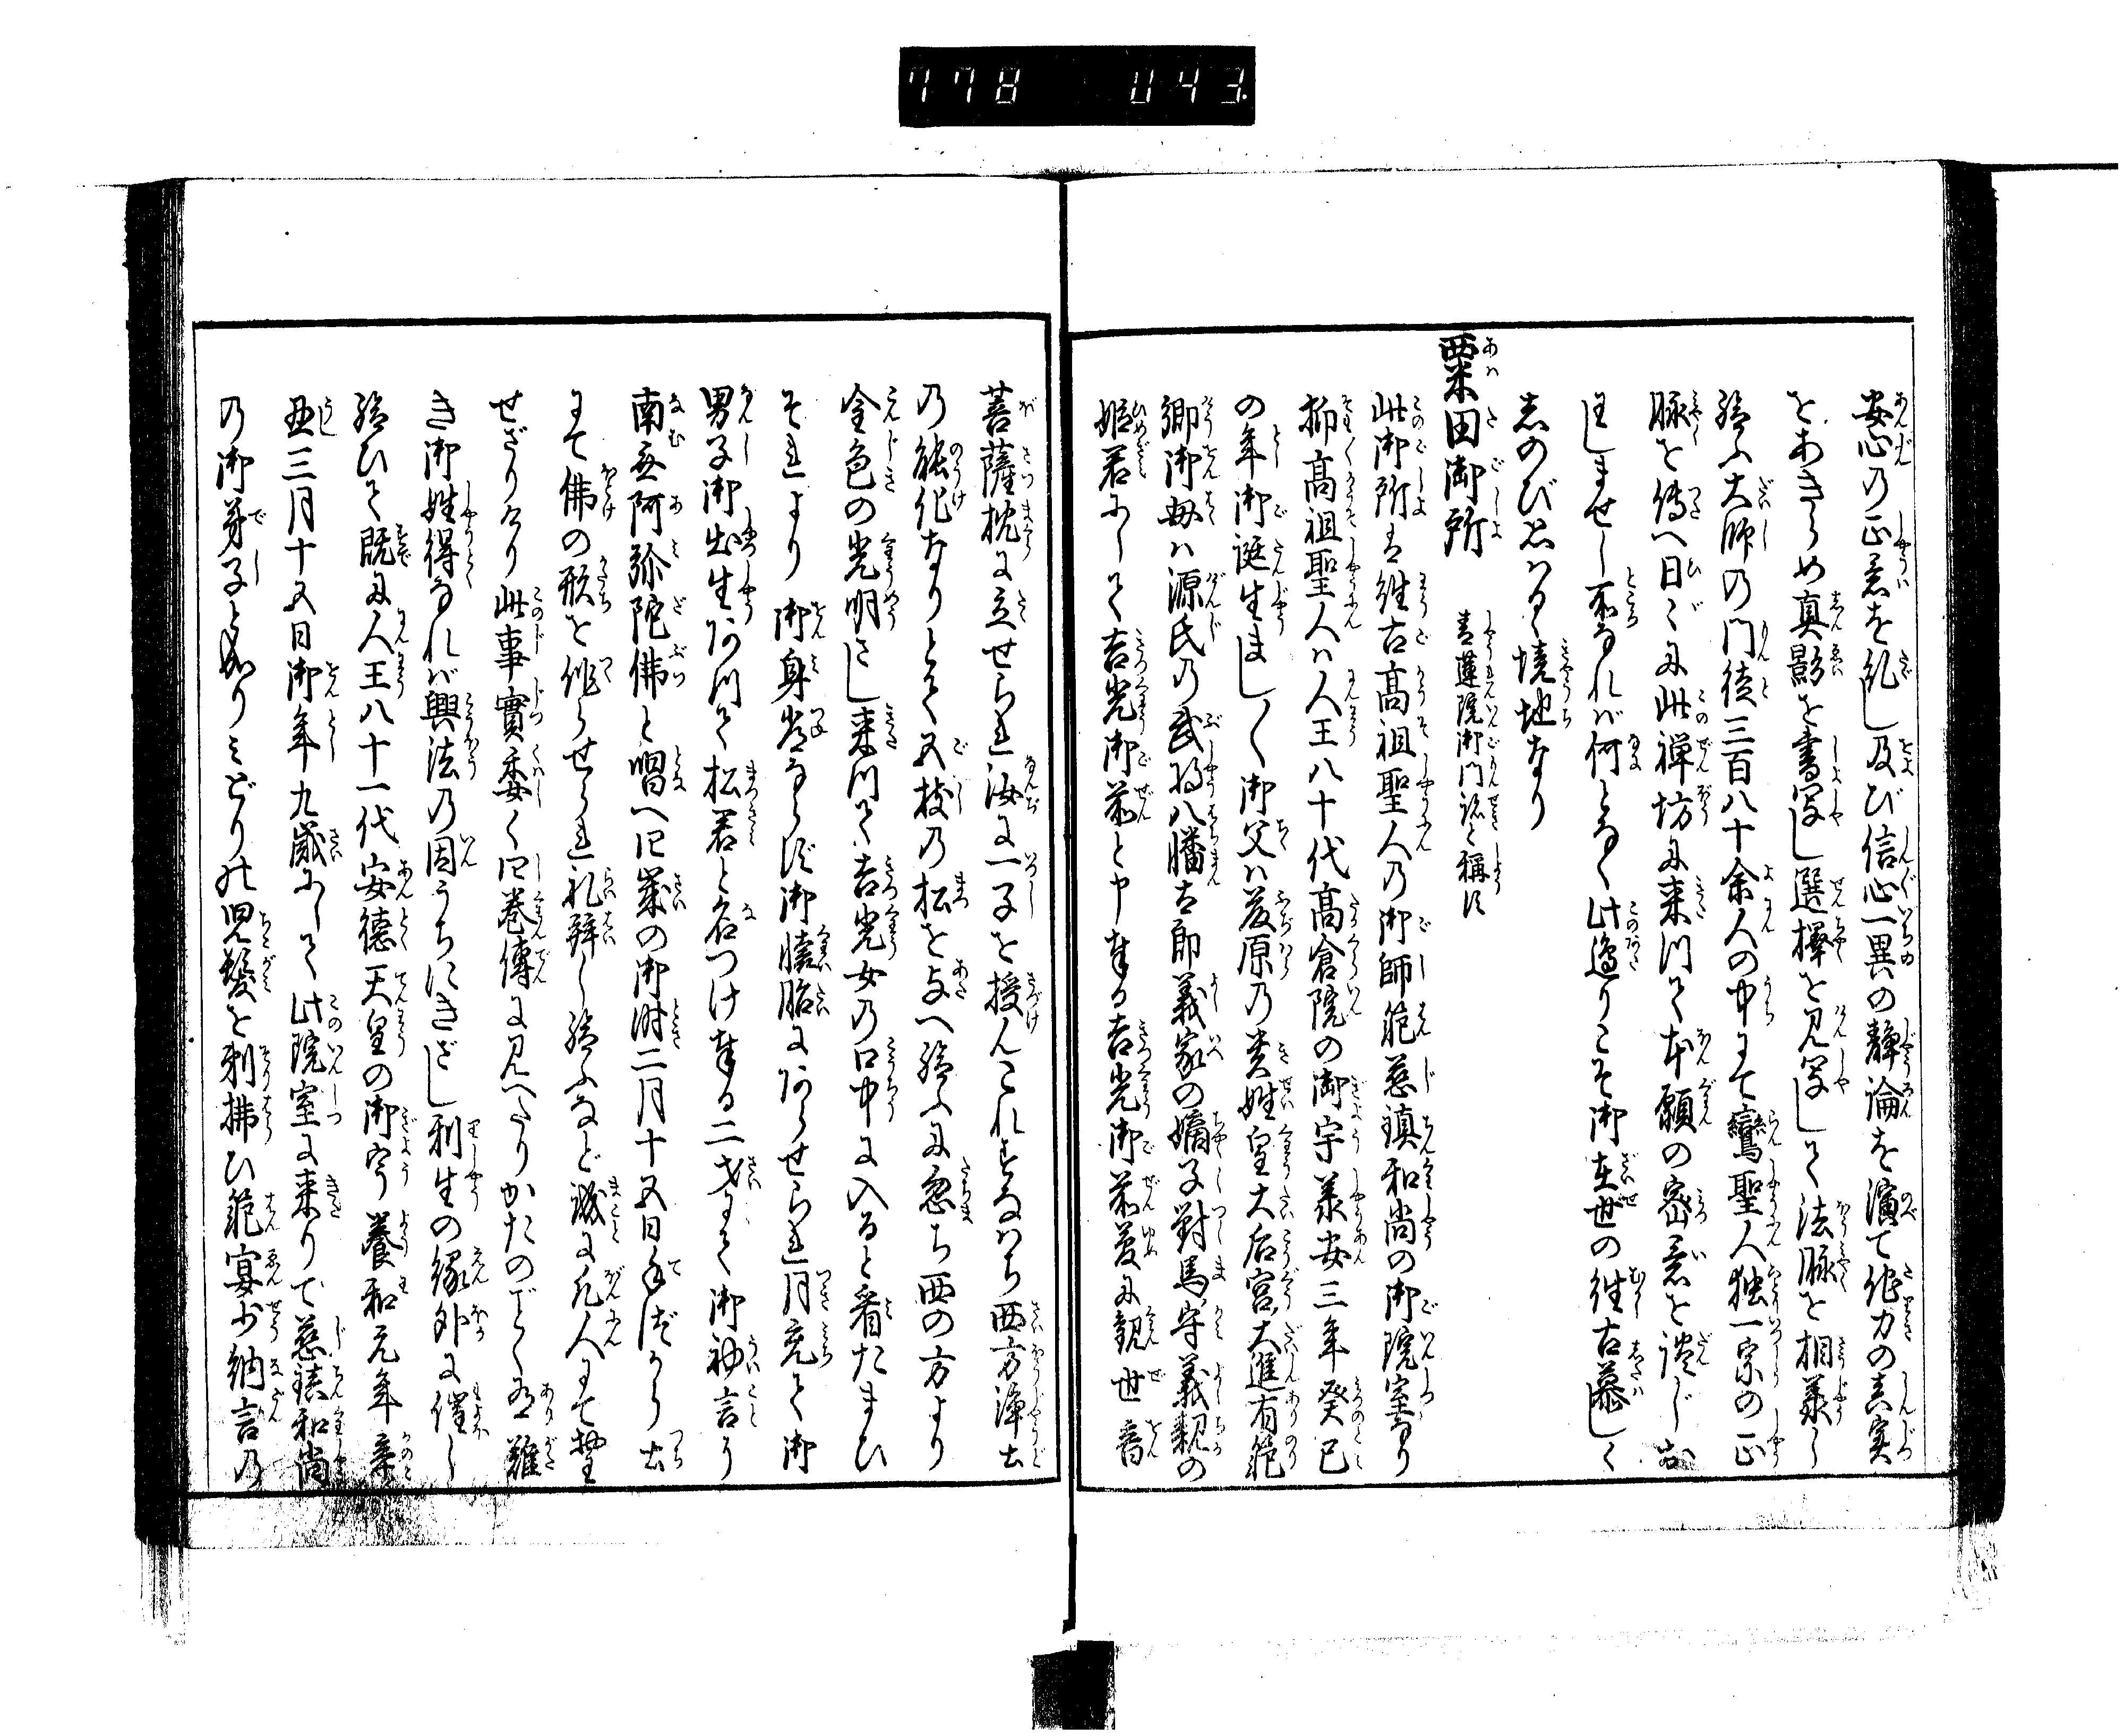 778 043
安心の正意を糺し及び信心一異の諍論を演て他力の真実
をあきらめ真影を書写し選擇を見写して法脉を相承し
給ふ大師の門徒三百八十余人の中にて鸞聖人独一宗の正
脉を傳へ日々に此禅坊に来つて本願の密意を談じお
はしませし所なれば何となく此邊りこそ御在世の往古慕しく
志のび思はるゝ境地なり
粟田御所 青蓮院御門跡と稱す
此御所は往古高祖聖人の御師範慈鎮和尚の御院室なり
抑高祖聖人は人王八十代高倉院の御宇承安三年癸巳
の年御誕生まし〱御父は藤原の貴姓皇太后宮大進有範
卿御母は源氏の武将八幡太郎義家の嫡子對馬守義親の
姫君にして吉光御前と申奉る吉光御前夢に観世音
菩薩枕に立せられ汝に一子を授んこれすなはち西方浄土
の能化なりとて五枝の松を与へ給ふに忽ち西の方より
金色の光明さし来つて吉光女の口中に入ると看たまひ
それより御身常ならず御懐胎にあらせられ月充て御
男子御出生あつて松君と名つけ奉る二才にて御初言う
南無阿弥陀佛と唱へ四歳の御時二月十五日手づから土
にて佛の形を作らせられ礼拝し給ふなど誠に凡人にて埜
せざりけり此事實委く四巻傳に見へたりかたのごとく有難
き御姓得なれば興法の因うちにきざし利生の縁外に催し
給ひて既に人王八十一代安徳天皇の御宇養和元年辛
丑三月十五日御年九歳にして此院室に来りて慈鎮和尚
の御弟子と成りみどりの児髪を剃拂ひ範宴少納言の